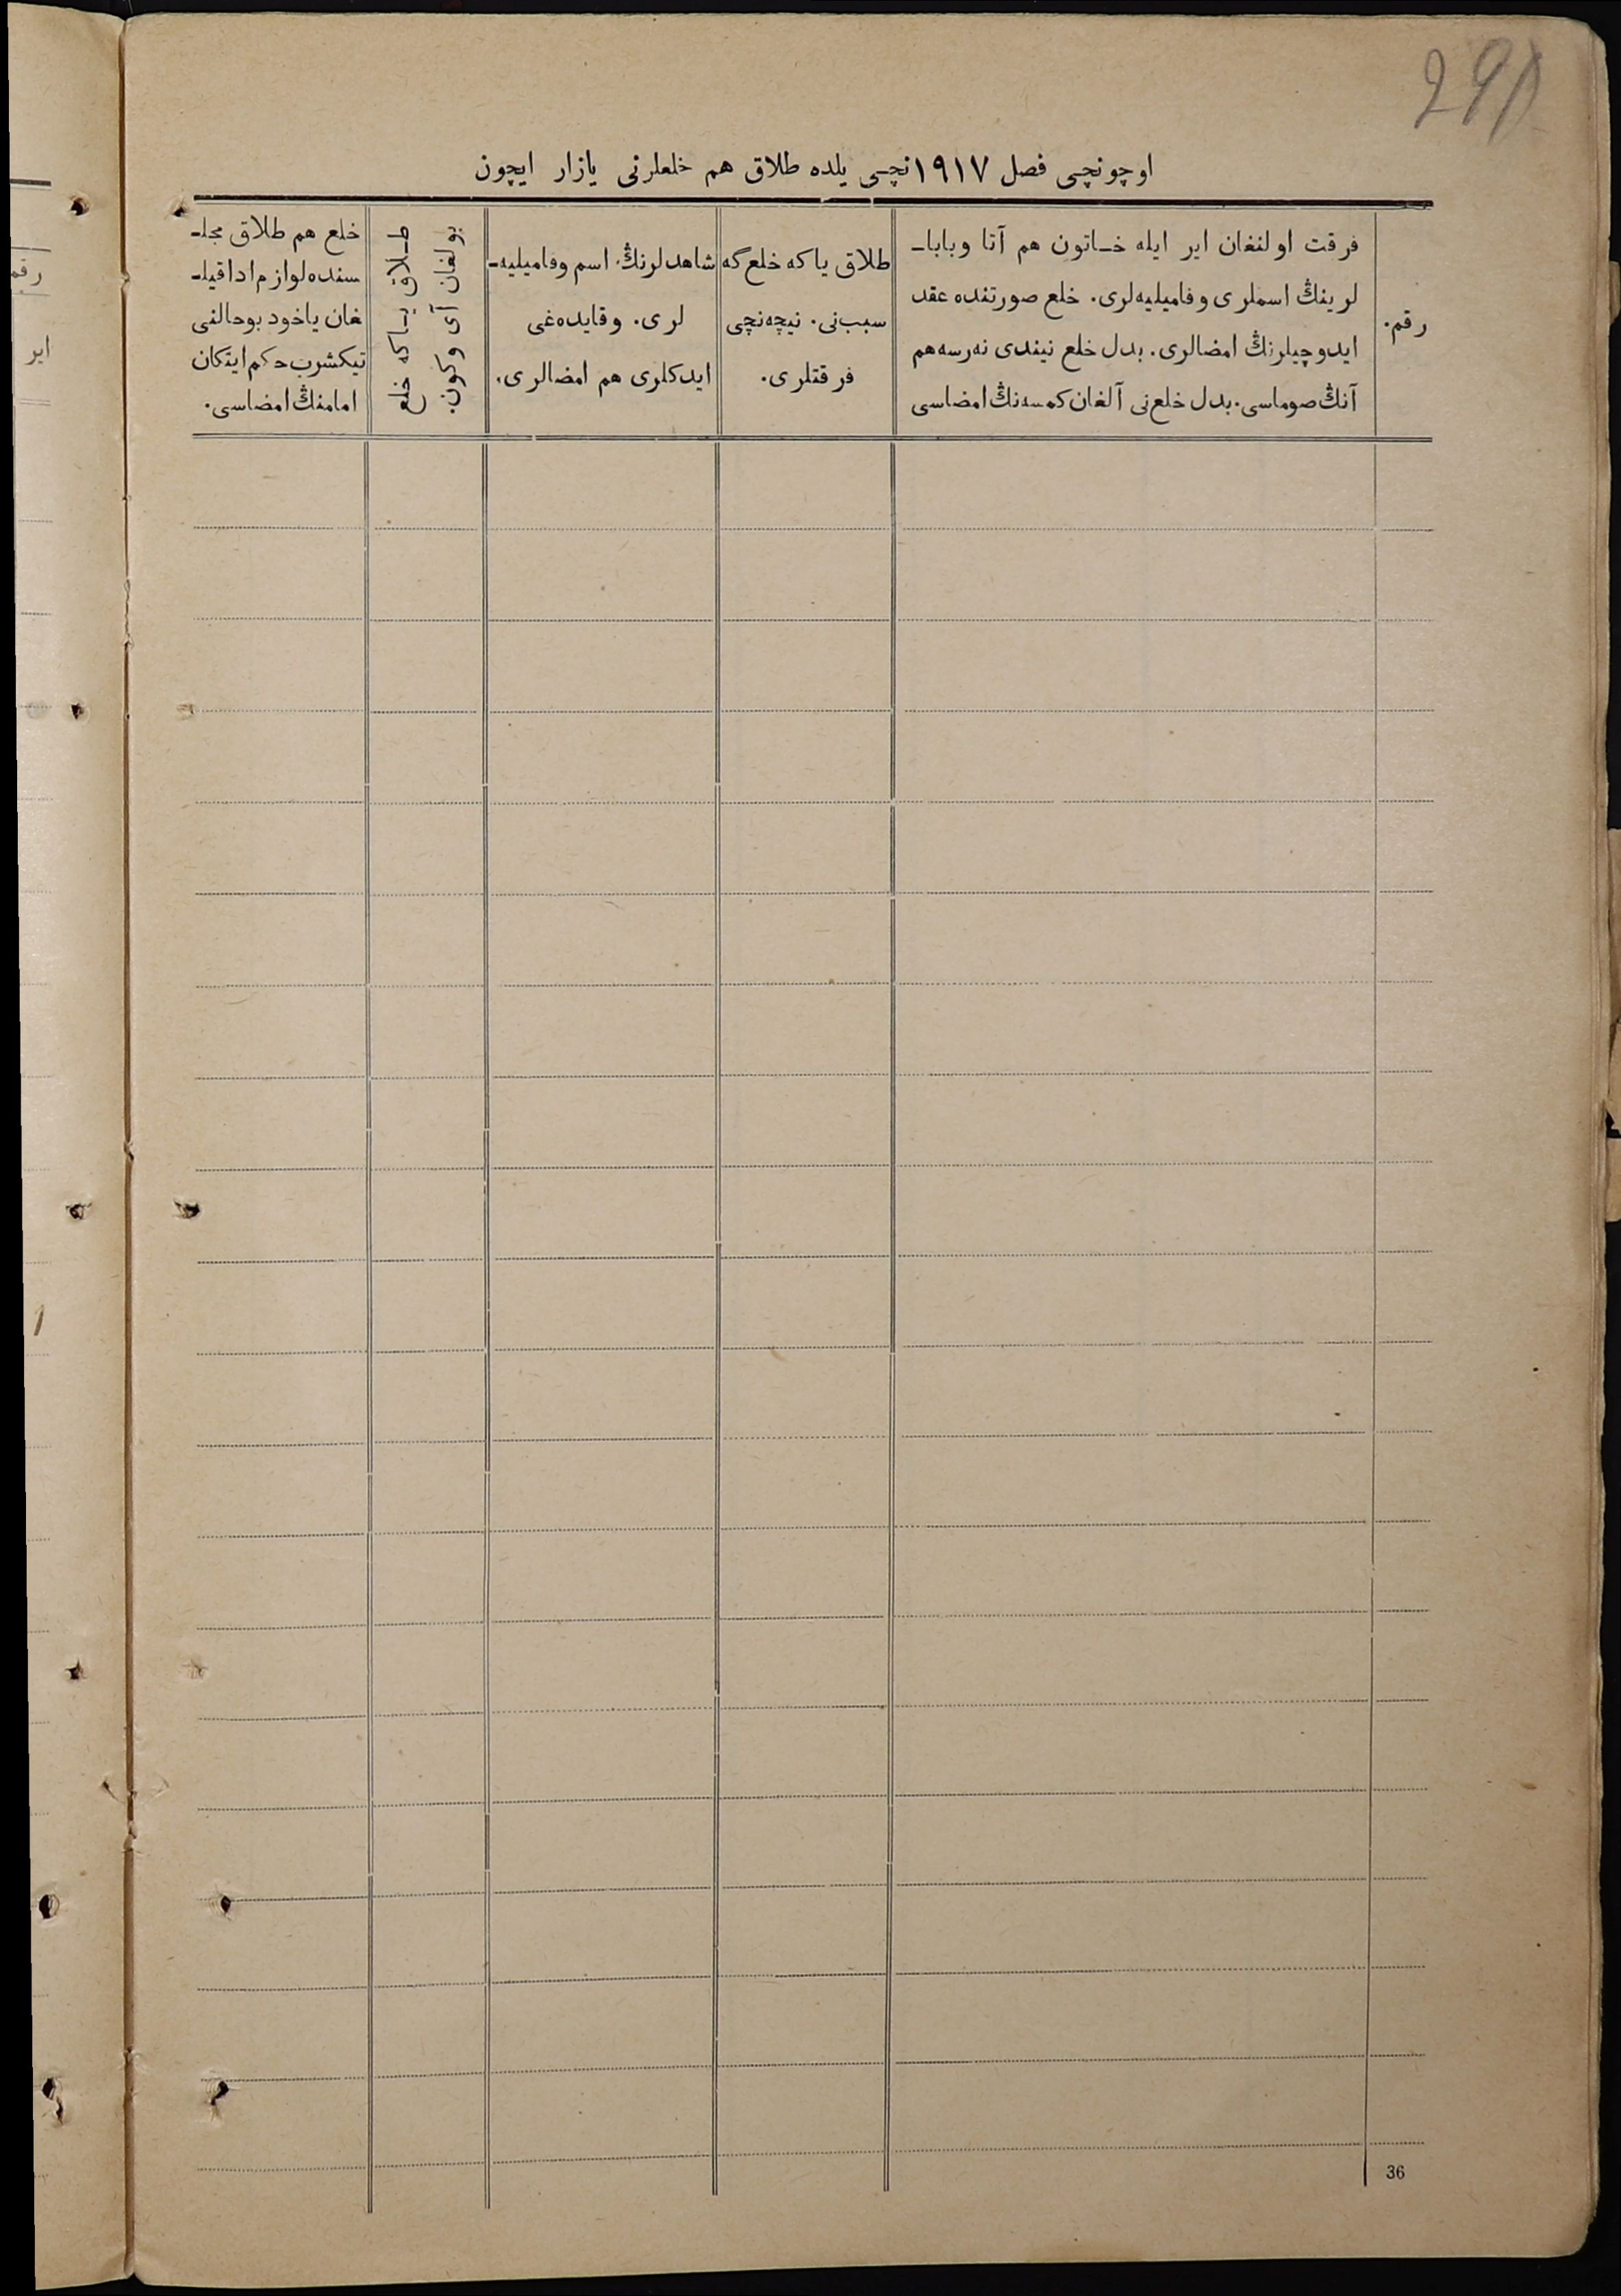 298
اوچونچی فصل ١٩١٧نچی یلده طلاق هم خلعلرنی یازار ایچون
رقم.
فرقت اولنغان ایر ایله خـاتون هم آتا وباباـ
لرینڭ اسملری وفامیلیه‌لری. خلع صورتنده عقد
ایدوچیلرنڭ امضالری. بدل خلع نیندی نه‌رسه هم
آنڭ صوماسی. بدل خلع‌نی آلغان کمسه‌نڭ امضاسی
طلاق یا که خلع گه
سبب‌نی. نیچه‌نچی
فرقتلری.
شاهدلرنڭ اسم وفامیلیه‌ـ
لری. وقایده‌غی
ایدکلری هم امضالری.
طـلاق یـا که خلع
بولغان آی وکون.
خلع هم طلاق مجلـ
سنده لوازم ادا قیلـ
غان یاخود بوحالنی
تیکشرب حکم ایتکان
امامنڭ امضاسی.
36
رقم
ایر